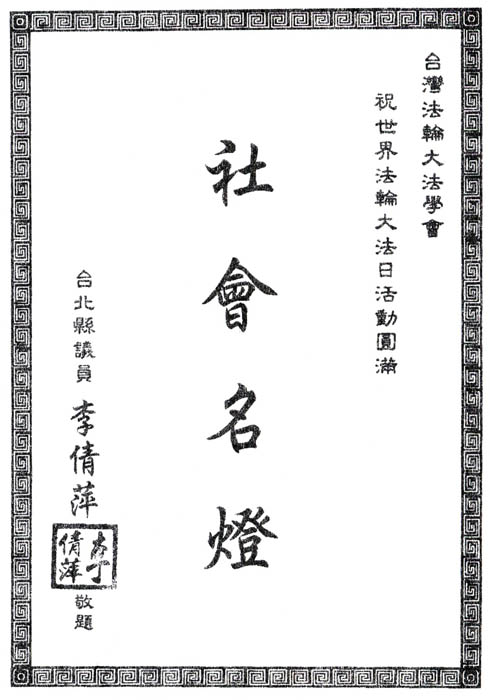 台灣法輪大法學會
祝世界法輪大法日活動圓滿
社會名燈
台北縣議員 李倩萍 敬題
李倩萍